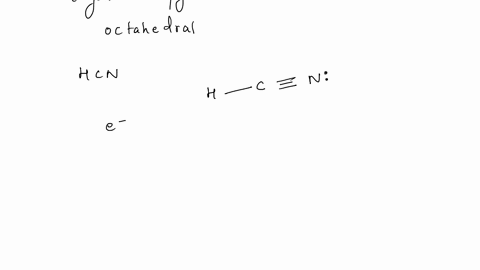 octahedral
HCN
H — C ≡ N:
e⁻